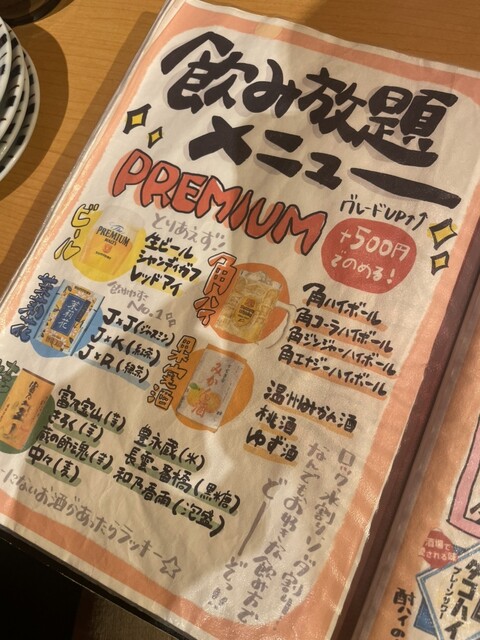 飲み放題
メニュー
PREMIUM
グレードUP↑↑
+500円
でのめる!
ビール
とりあえず!
PREMIUM
生ビール
シャンディガフ
レッドアイ
角ハイ
角ハイボール
角コーラハイボール
角ジンジャーハイボール
角エナジーハイボール
茉莉花
No.1
茉莉花
J×J(ジャスミン)
J×K(紅茶)
J×R(緑茶)
果実酒
みかん酒
温州みかん酒
桃酒
ゆず酒
富乃宝山(芋)
きろく(芋)
の師魂(芋)
中々(麦)
豊永蔵(米)
長雲一番橋(黒糖)
和乃春雨(泡盛)
ロック水割りソーダ割り
なんでもお好きな飲み方で
ど――ぞっ
ないお酒があったらラッキー☆
酒場で
される味
タコハイ
プレーンサワー
酎ハイの